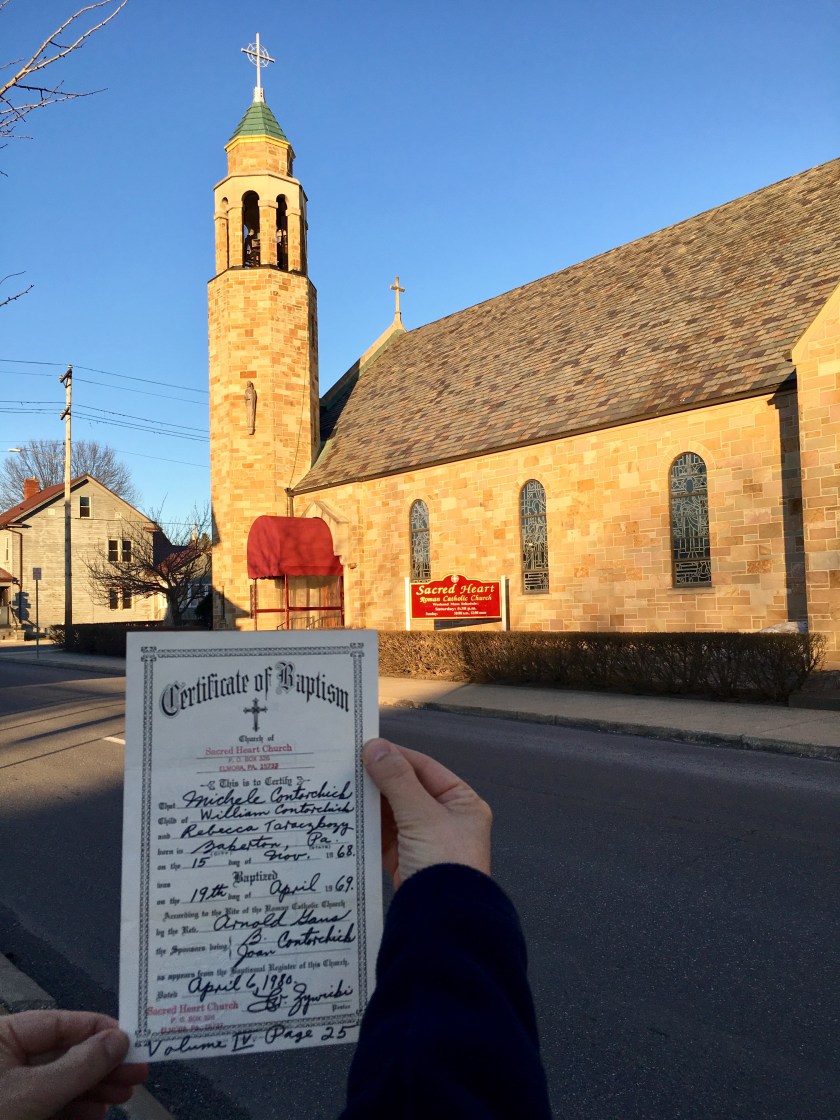 Sacred Heart
Roman Catholic Church
Weekend Mass Schedule:
Saturday: 5:30 p.m.
Certificate of Baptism
Church of
Sacred Heart Church
P. O. BOX
ELMORA, PA.
This is to Certify
That Michele Contorchick
Child of William Contorchick
and Rebecca Taraczkozy
born in Bakerton, Pa.
on the 15 day of Nov, 1968.
was Baptized
on the 19th day of April 1969.
According to the Rite of the Roman Catholic Church
by the Rev. Arnold Gaus
the Sponsors being B.
Joan Contorchick
as appears from the Baptismal Register of this Church.
Dated April 6, 1980.
Pastor
Sacred Heart Church
P. O. BOX
ELMORA, PA.
Volume IV Page 25